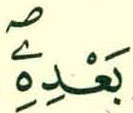 بَعْدِهِۖ